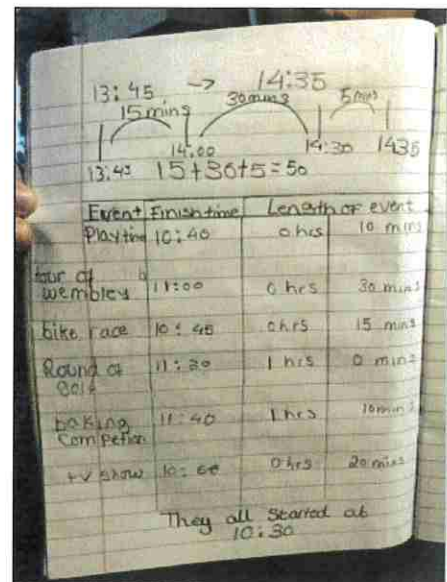 13:45 -> 14:35
15 mins 30mins 5mins
13:45 14:00 14:30 1435
15+30+5=50
Event Finish time Length of event
Playtime 10:40 0 hrs 10 mins
tour of wembley 11:00 0 hrs 30 mins
bike race 10:45 0hrs 15 mins
Round of 11:30 1 hrs 0 mins
baking Competion 11:40 1 hrs 10mins
tv show 0 hrs 20 mins
They all Started at
10:30